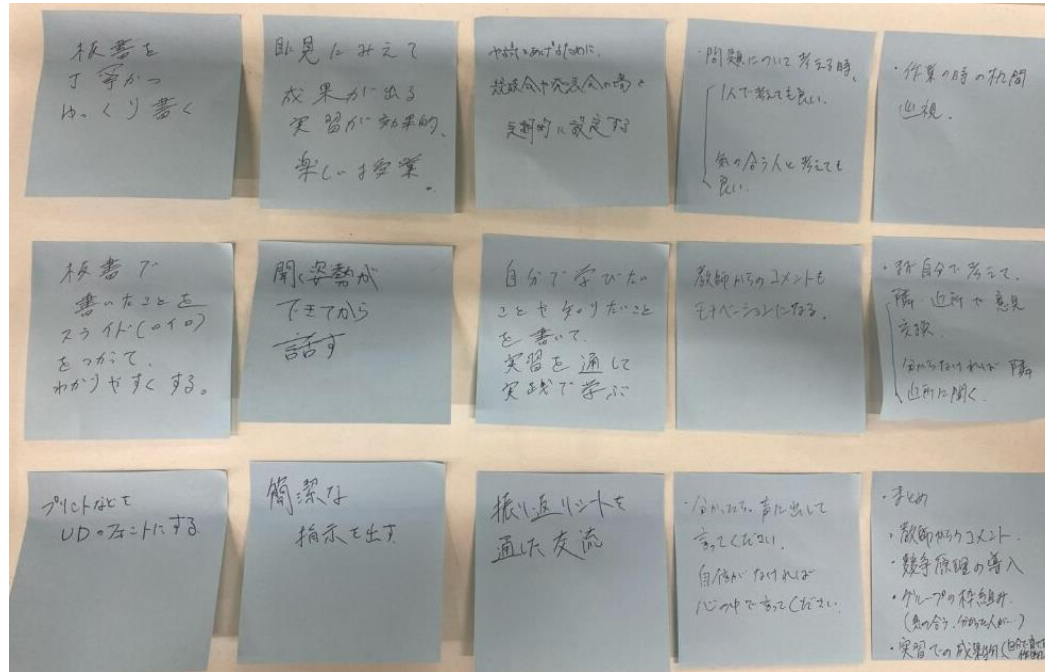 板書を
丁寧かつ
ゆっくり書く
目に見にみえて
成果が出る
実習が効果的、
楽しい授業。
競技会や発表会の場を
定期的に設定する
・問題について考える時、
1人で考えても良い。
気の合う人と考えても
良い。
・作業の時の机間
巡視。
板書で
書いたことを
スライド(ロイロ)
をつかって、
わかりやすくする。
聞く姿勢が
できてから
話す
自分で学びたい
ことや知りたいこと
を書いて、
実習を通して
実践で学ぶ
教師からのコメントも
モチベーションになる。
自分で考えて、
隣・近所で意見
交換。
分からなければ隣
近所に聞く。
プリントなども
UDのフォントにする
簡潔な
指示を出す
振り返りシートを
通した交流
・分かったら、声に出して
言ってください。
自信がなければ
心の中で言ってください。
・まとめ
・教師からのコメント
・競争原理の導入
・グループの枠組み
(気の合う、分かった人が…)
・実習での成果物